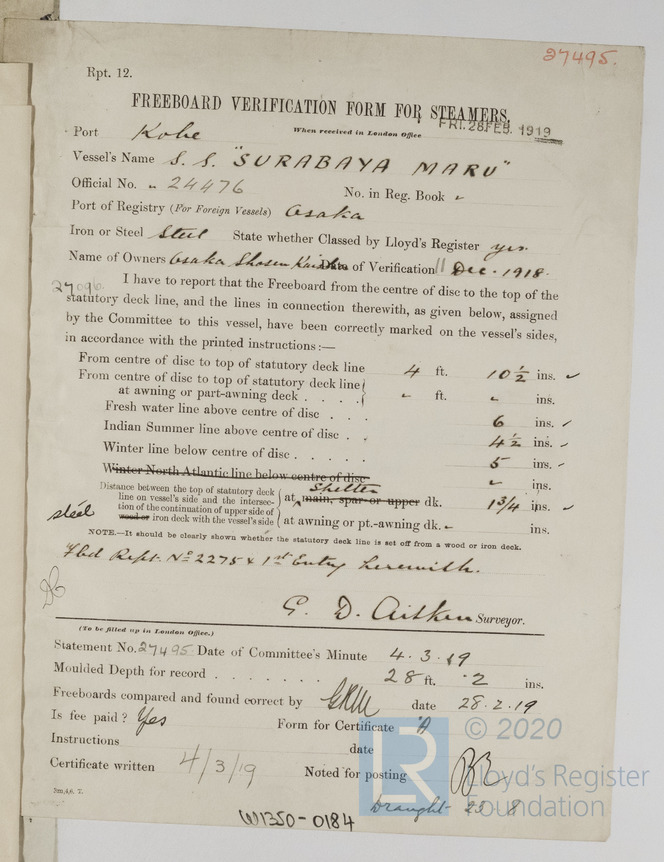 27495.
Rpt. 12.
FREEBOARD VERIFICATION FORM FOR STEAMERS.
Port Kobe When received in London Office FRI. 28 FEB. 1919
Vessel's Name S. S. "SURABAYA MARU"
Official No. „ 24476 No. in Reg. Book „
Port of Registry (For Foreign Vessels) Osaka
Iron or Steel Steel State whether Classed by Lloyd's Register yes.
Name of Owners Osaka Shosen Kaisha Date of Verification 11 Dec. 1918.
I have to report that the Freeboard from the centre of disc to the top of the
statutory deck line, and the lines in connection therewith, as given below, assigned
by the Committee to this vessel, have been correctly marked on the vessel's sides,
in accordance with the printed instructions:—
From centre of disc to top of statutory deck line 4 ft. 10 1/2 ins. ✓
From centre of disc to top of statutory deck line
at awning or part-awning deck . . . . „ ft. „ ins.
Fresh water line above centre of disc . . . 6 ins. ✓
Indian Summer line above centre of disc . . 4 1/2 ins. ✓
Winter line below centre of disc . . . . . 5 ins. ✓
Winter North Atlantic line below centre of disc „ ins.
Distance between the top of statutory deck
line on vessel's side and the intersec-
tion of the continuation of upper side of
steel wood or iron deck with the vessel's side
at Shelter main, spar or upper dk. 1 3/4 ins. ✓
at awning or pt.-awning dk. „ ins.
NOTE.—It should be clearly shown whether the statutory deck line is set off from a wood or iron deck.
Fbd Rept. No 2275 & 1st Entry herewith.
G. D. Aitken Surveyor.
(To be filled up in London Office.)
Statement No. 27495 Date of Committee's Minute 4.3.19
Moulded Depth for record . . . . . . . 28 ft. .2 ins.
Freeboards compared and found correct by GRM date 28.2.19
Is fee paid? Yes Form for Certificate "A
Instructions date
Certificate written 4/3/19 Noted for posting
Draught 23 8
W1350-0184
© 2020
LR
Lloyd's Register
Foundation